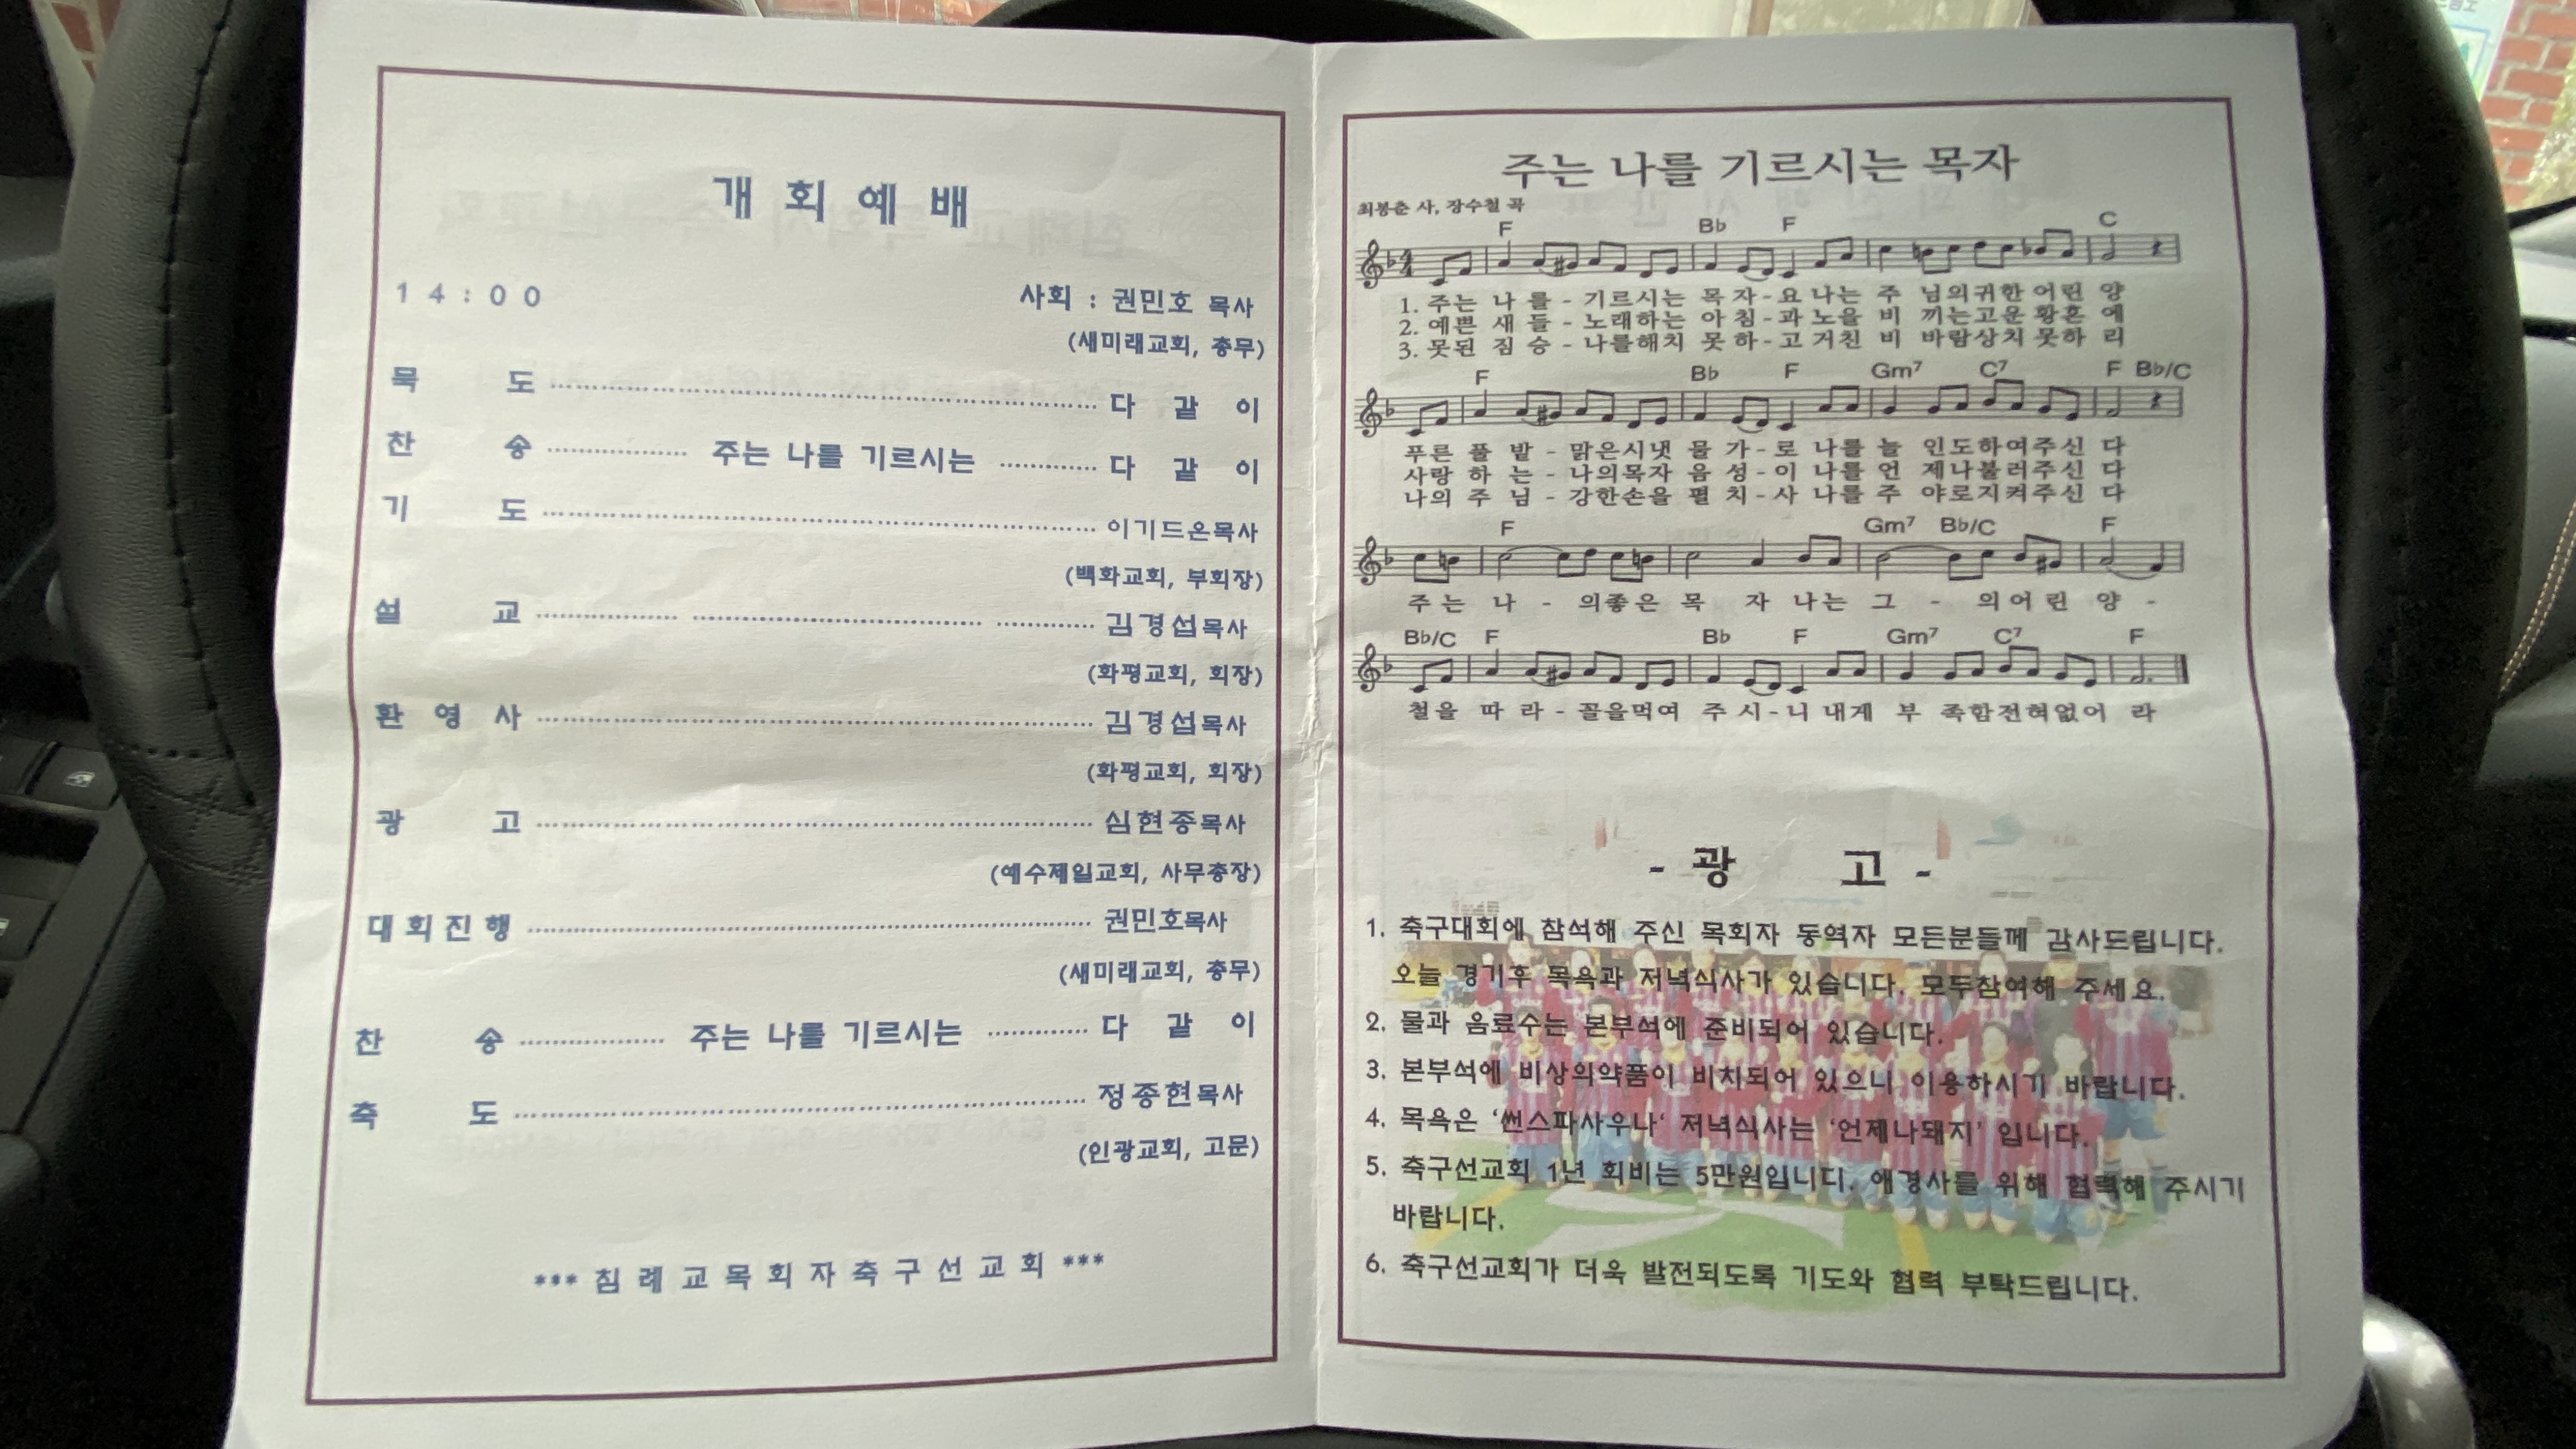 개 회 예 배
14:00 사회 : 권민호 목사
(새미래교회, 총무)
묵 도 다 같 이
찬 송 주는 나를 기르시는 다 같 이
기 도 이기드온목사
(백화교회, 부회장)
설 교 김경섭목사
(화평교회, 회장)
환 영 사 김경섭목사
(화평교회, 회장)
광 고 심현종목사
(예수제일교회, 사무총장)
대 회 진 행 권민호목사
(새미래교회, 총무)
찬 송 주는 나를 기르시는 다 같 이
축 도 정종현목사
(인광교회, 고문)
*** 침 례 교 목 회 자 축 구 선 교 회 ***
주는 나를 기르시는 목자
최봉춘 사, 장수철 곡
F Bb F C
1. 주는 나 를 - 기르시는 목 자 - 요 나는 주 님의귀한 어린 양
2. 예쁜 새 들 - 노래하는 아 침 - 과 노을 비 끼는고운 황혼 에
3. 못된 짐 승 - 나를해치 못 하 - 고 거친 비 바람상치 못하 리
F Bb F Gm7 C7 F Bb/C
푸른 풀 밭 - 맑은시냇 물 가 - 로 나를 늘 인도하여주신 다
사랑 하 는 - 나의목자 음 성 - 이 나를 언 제나불러주신 다
나의 주 님 - 강한손을 펼 치 - 사 나를 주 야로지켜주신 다
F Gm7 Bb/C F
주 는 나 - 의좋은 목 자 나는 그 - 의 어 린 양 -
Bb/C F Bb F Gm7 C7 F
철을 따 라 - 꼴을먹여 주 시 - 니 내게 부 족함전혀없어 라
- 광 고 -
1. 축구대회에 참석해 주신 목회자 동역자 모든분들께 감사드립니다.
오늘 경기후 목욕과 저녁식사가 있습니다. 모두참여해 주세요.
2. 물과 음료수는 본부석에 준비되어 있습니다.
3. 본부석에 비상의약품이 비치되어 있으니 이용하시기 바랍니다.
4. 목욕은 ‘썬스파사우나‘ 저녁식사는 ‘언제나돼지’ 입니다.
5. 축구선교회 1년 회비는 5만원입니디. 애경사를 위해 협력해 주시기
바랍니다.
6. 축구선교회가 더욱 발전되도록 기도와 협력 부탁드립니다.